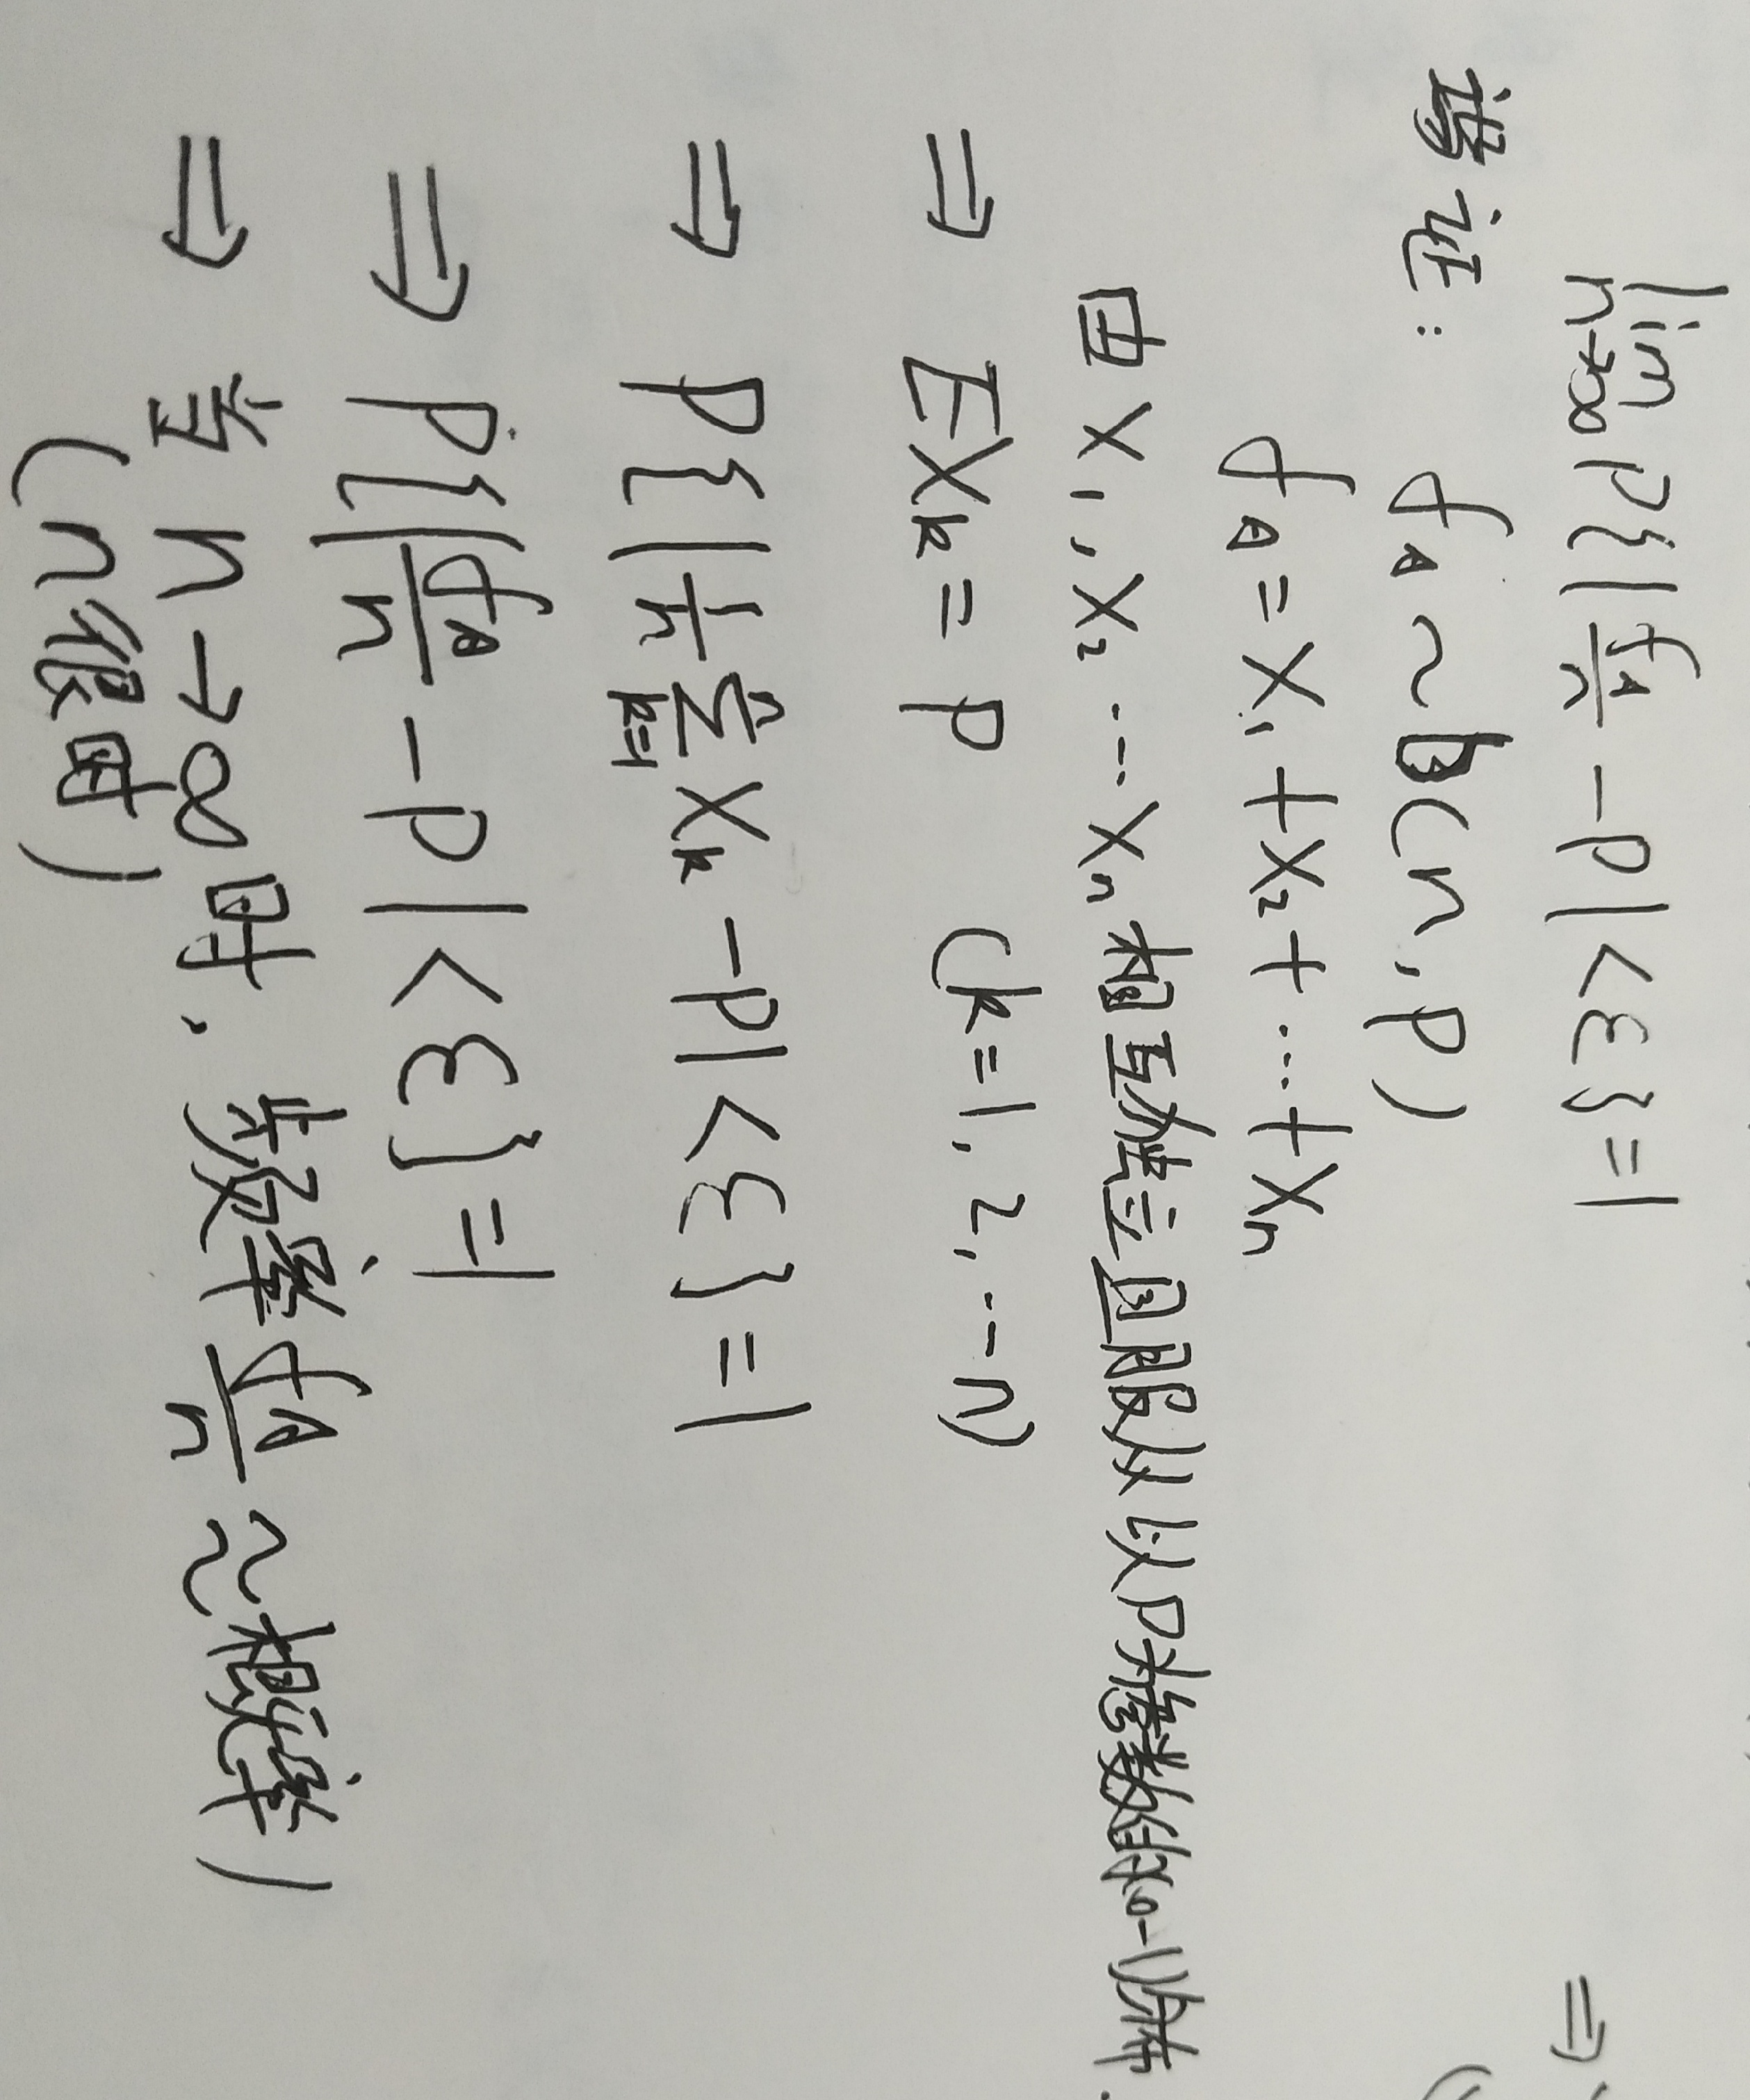 lim n→∞ P{|fA/n - P|<ε}=1
证:
fA ~ b(n,p)
fA = X₁+X₂+…+Xₙ
由X₁,X₂…Xₙ相互独立且服从以P为参数的(0-1)分布.
⇒ EXₖ = P (k=1,2,…n)
⇒ P{|1/n ∑ₖ₌₁ⁿ Xₖ - P|<ε}=1
⇒ P{|fA/n - P|<ε}=1
⇒ 当n→∞时,频率fA/n≈概率)
(n很时)